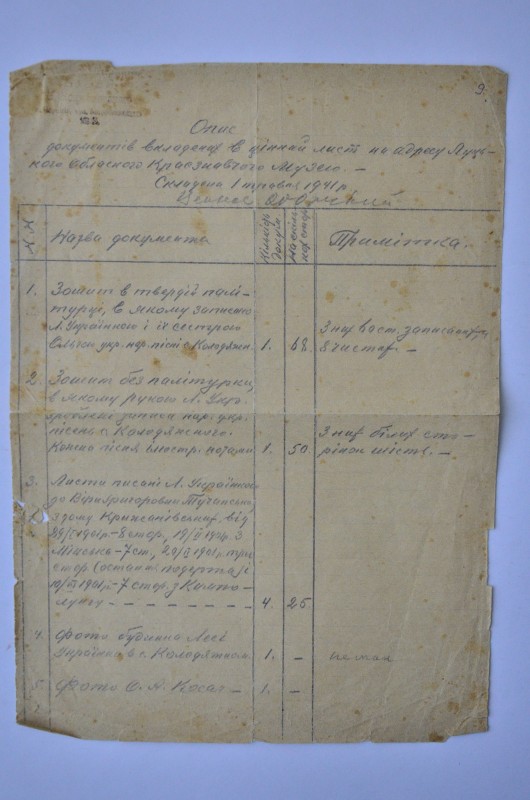 9.
Опис
документів вкладених в цінний лист на адресу Луць-
кого Обласного Краєзнавчого Музею. —
Складена 1 травня 1941 р.
N.N
Назва документа
Кількість докум.
На скільк. стор.
Примітка.
1. Зошит в твердій палі-
турці, в якому записано
Л. Українкою і її сестрою
Ольгою укр. нар. пісні с. Колодяжн. 1. 68.
З них 8 чистих. —
2. Зошит без палітурки,
в якому рукою Л. Укр.
зроблені записи нар. укр.
пісень с Колодяжного.
Кожна пісня ілюстр. нотами 1. 50.
З них білих сто-
рінок шість. —
3. Листи писані Л. Українкою
до Віри Григоровни Тучапської
з дому Крижанівських, від
1901р.-8 стор, 1901р. З
Мінськ-7 ст, 1901р. три
стор. (остання подерта) і
1901р.-7 стор. з Кимпо-
лунгу - - - - - - - - 4. 25.
4. Фото будинка Лесі
Українки в с. Колодяжном. 1. —
немає
5. Фото О. П. Косач — 1. —